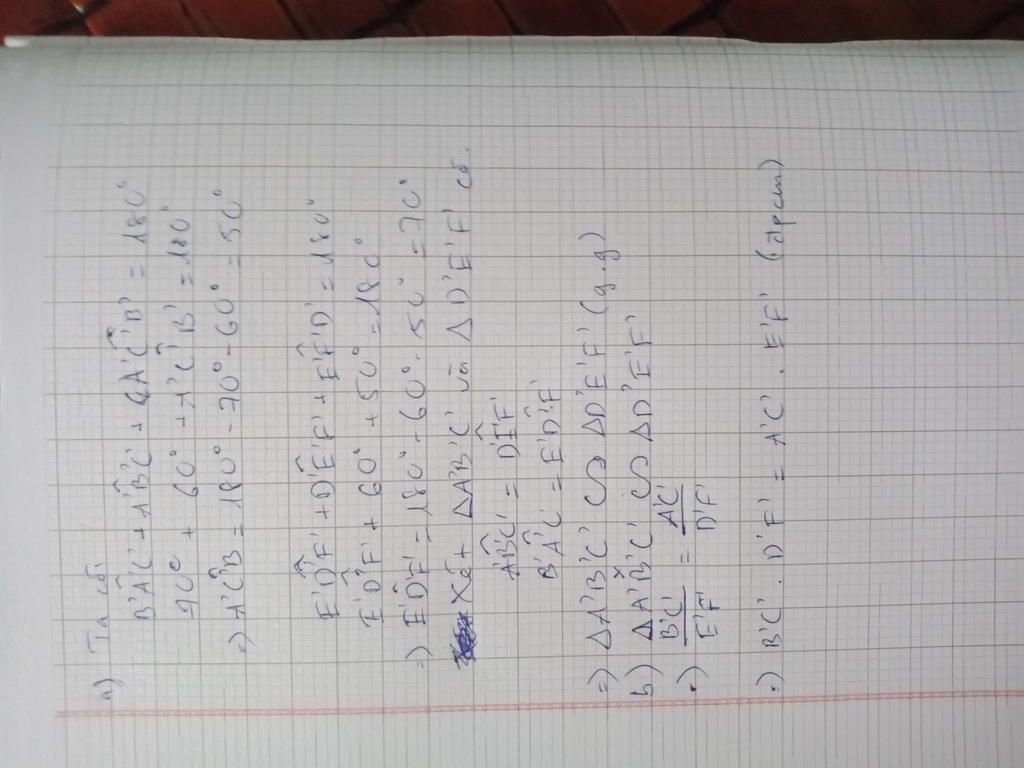 a) Ta có:
B'Â'C' + A'B̂'C' + A'Ĉ'B' = 180°
70° + 60° + A'Ĉ'B' = 180°
=) A'Ĉ'B = 180° - 70° - 60° = 50°
E'D̂'F' + D'Ê'F' + E'F̂'D' = 180°
E'D̂'F' + 60° + 50° = 180°
=) E'D̂'F' = 180° - 60° - 50° = 70°
Xét ΔA'B'C' và ΔD'E'F' có.
A'B̂'C' = D'Ê'F'
B'Â'C' = E'D̂'F'
=) ΔA'B'C' ∽ ΔD'E'F' (g.g)
b) ΔA'B'C' ∽ ΔD'E'F'
=) B'C'/E'F' = A'C'/D'F'
=) B'C' . D'F' = A'C' . E'F' (đpcm)